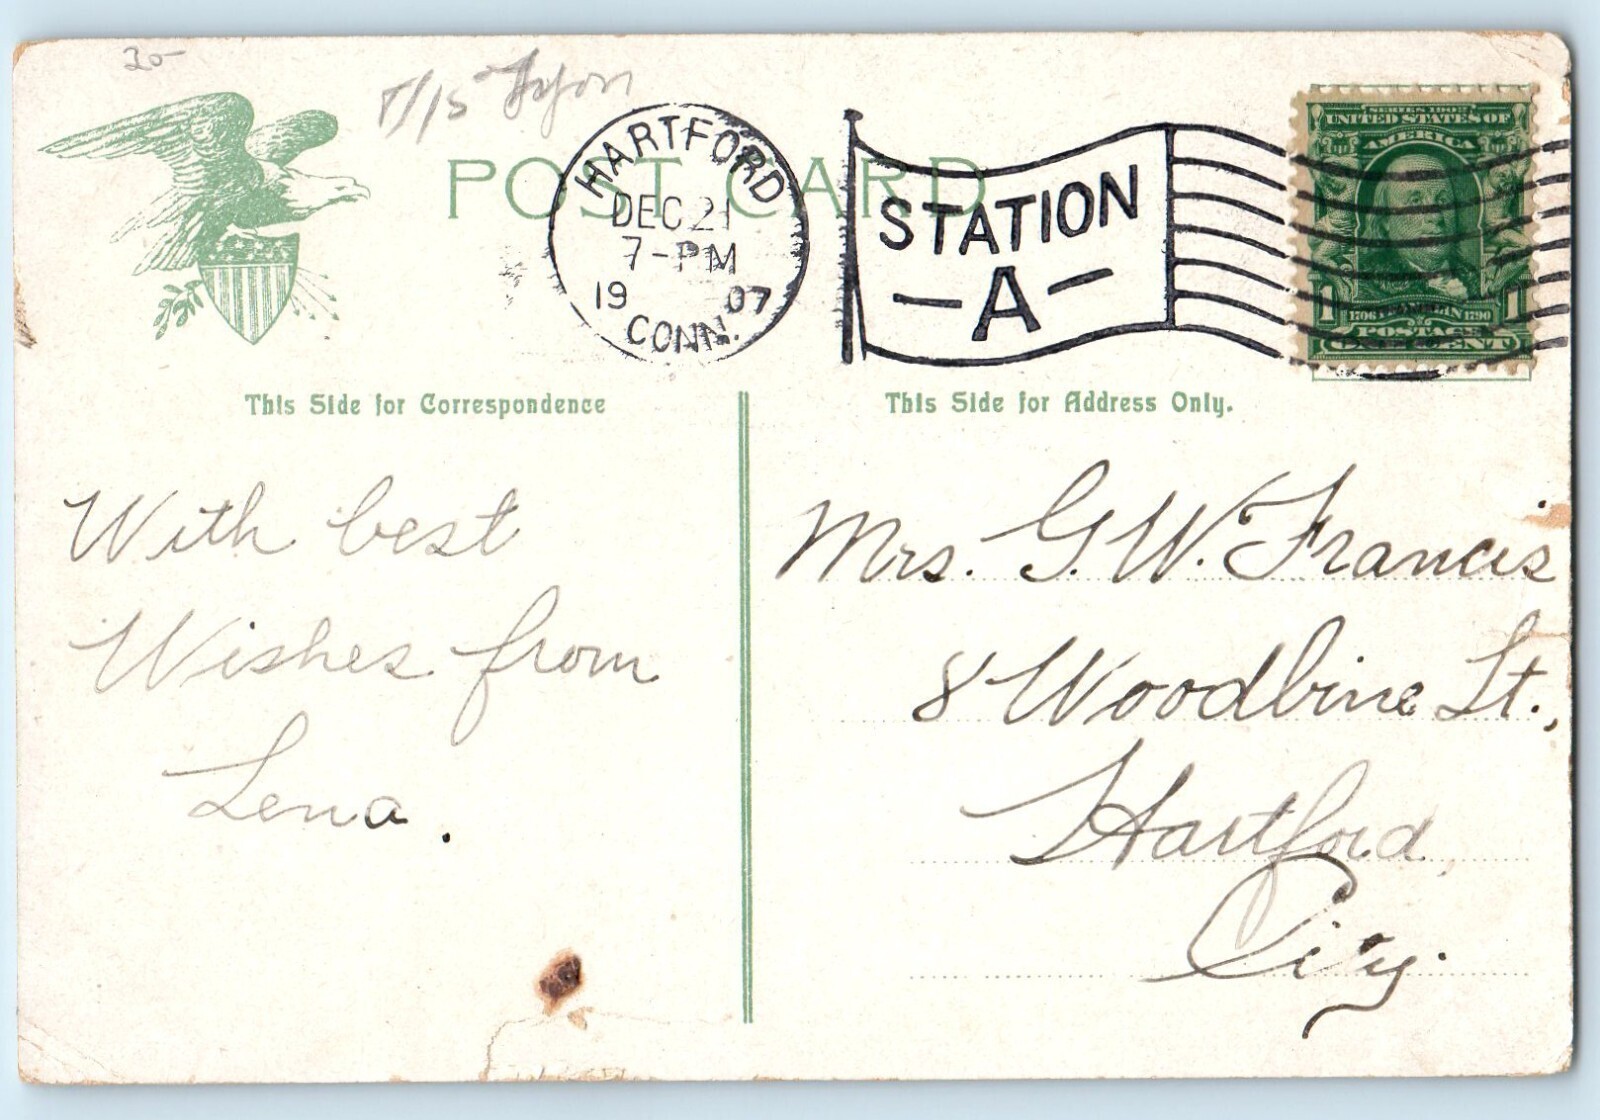 20-
POST CARD
HARTFORD
DEC 21
7-PM
19 07
CONN.
STATION
-A-
SERIES 1902
UNITED STATES OF
AMERICA
1 1
1706 FRANKLIN 1790
POSTAGE
ONE CENT
This Side for Correspondence
This Side for Address Only.
With best
Wishes from
Lena.
Mrs. G. W. Francis
8 Woodbine St.,
Hartford,
City.